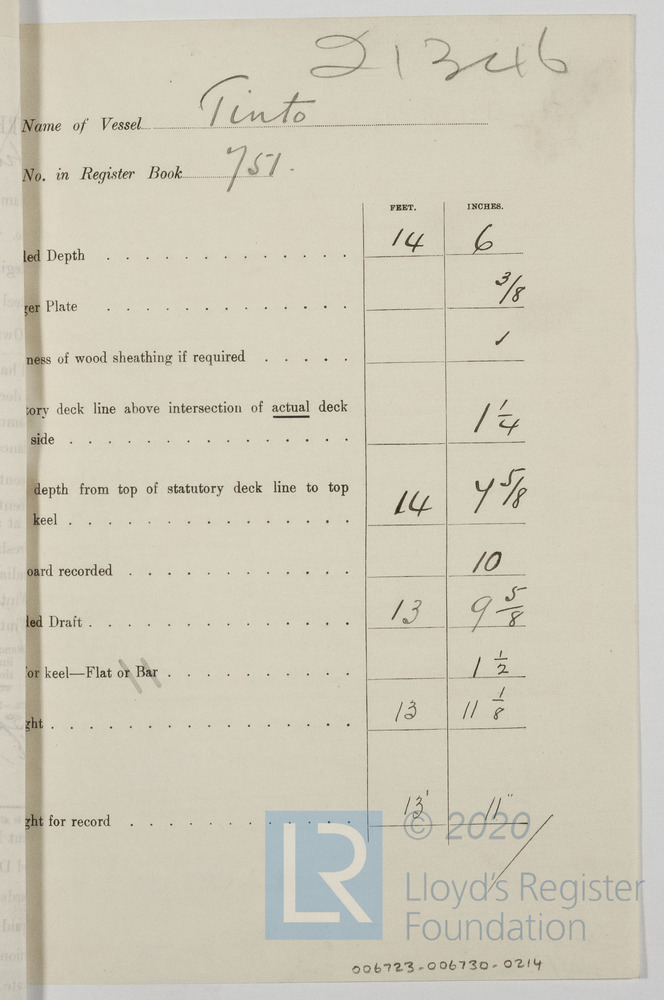 21346
Name of Vessel Tinto
No. in Register Book 751.
FEET. INCHES.
led Depth 14 6
ger Plate 3/8
ness of wood sheathing if required ✓
tory deck line above intersection of actual deck
side 1 1/4
depth from top of statutory deck line to top
keel 14 7 5/8
oard recorded 10
led Draft 13 9 5/8
or keel—Flat or Bar 1 1/2
ght 13 11 1/8
ght for record 13' 11"
© 2020
LR
Lloyd's Register
Foundation
006723-006730-0214